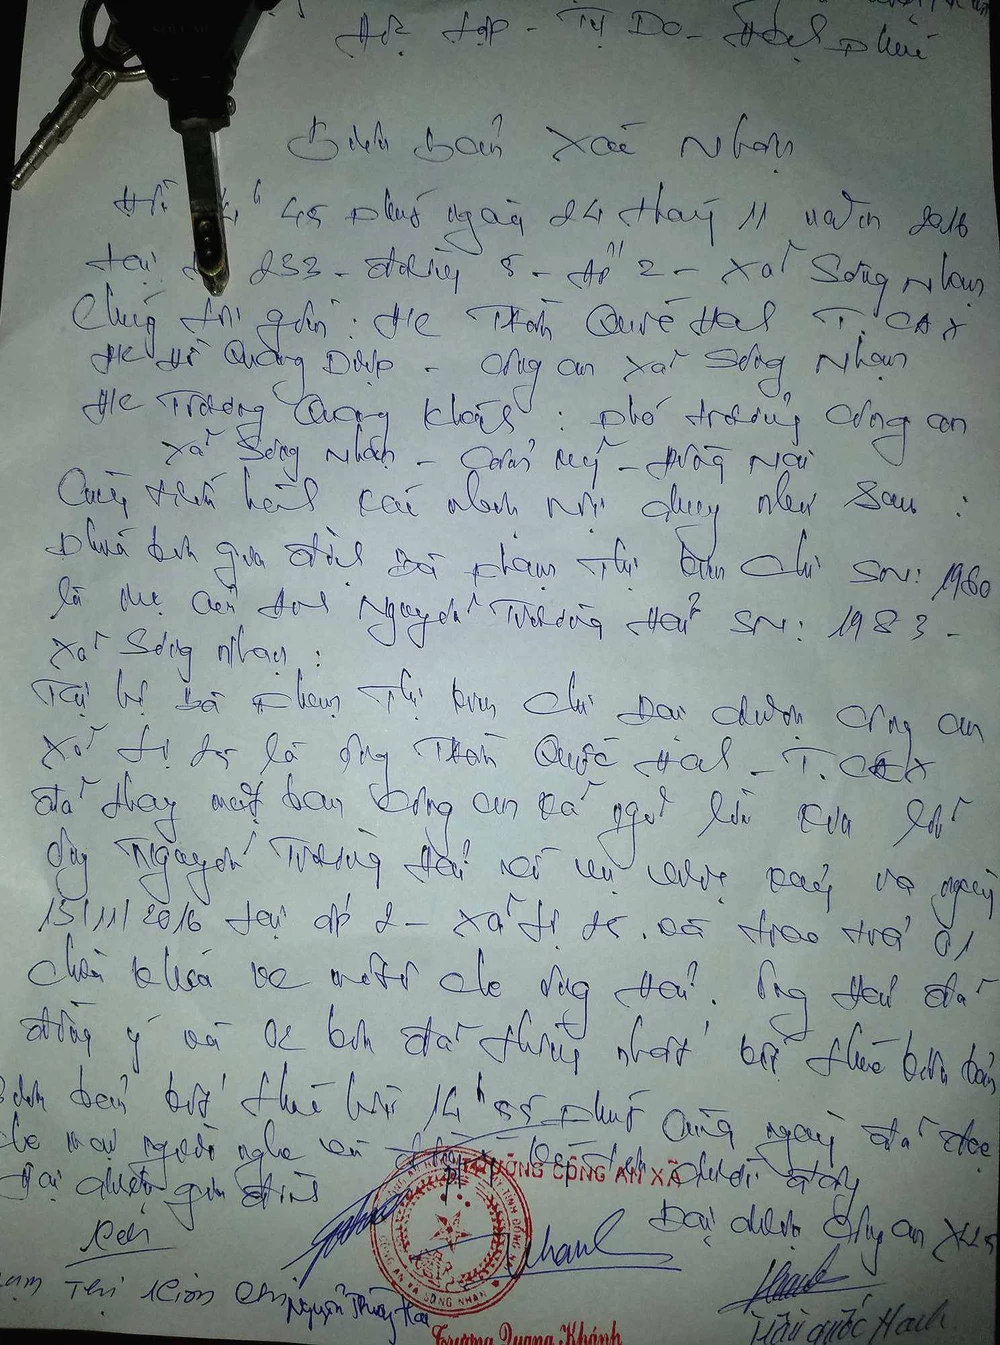 Độc lập - Tự Do - Hạnh phúc
Biên bản Xác Nhận
Hồi 45 phút ngày 24 tháng 11 năm 2016
tại 233 - đường 8 - ấp 2 - Xã Sông Nhạn
Chúng tôi gồm: Trần Quốc Hanh T. CAX
Hồ Quang Diệp - Công an xã Sông Nhạn
Trương Quang Khánh : phó trưởng công an
xã Sông Nhạn - Cẩm Mỹ - Đồng Nai
Cùng tiến hành xác nhận nội dung như sau :
phía bên gia đình Bà phạm Thị Kim Chi SN: 1960
là mẹ của anh Nguyễn Trường Hải SN: 1983 -
Xã Sông Nhạn :
Tại bà phạm Thị Kim Chi Đại diện công an
xã là ông Trần Quốc Hanh - T. CAX
đã thay mặt ban công an xã lỗi
ông Nguyễn Trường Hải ngày
15/11/2016 tại ấp 2 - xã và trao trả 01
chìa khoá xe môtô cho ông Hải. Ông Hải đã
đồng ý và 02 bên đã thống nhất kết thúc biên bản
Biên bản kết thúc hồi 14h 55 phút cùng ngày đã đọc
cho mọi người nghe ký tên dưới đây
Đại diện gia đình
TRƯỞNG CÔNG AN XÃ
Đại diện Công an xã
CÔNG AN XÃ SÔNG NHẠN
Thị Kim Chi
Nguyễn Trường Hải
Trương Quang Khánh
Trần Quốc Hanh